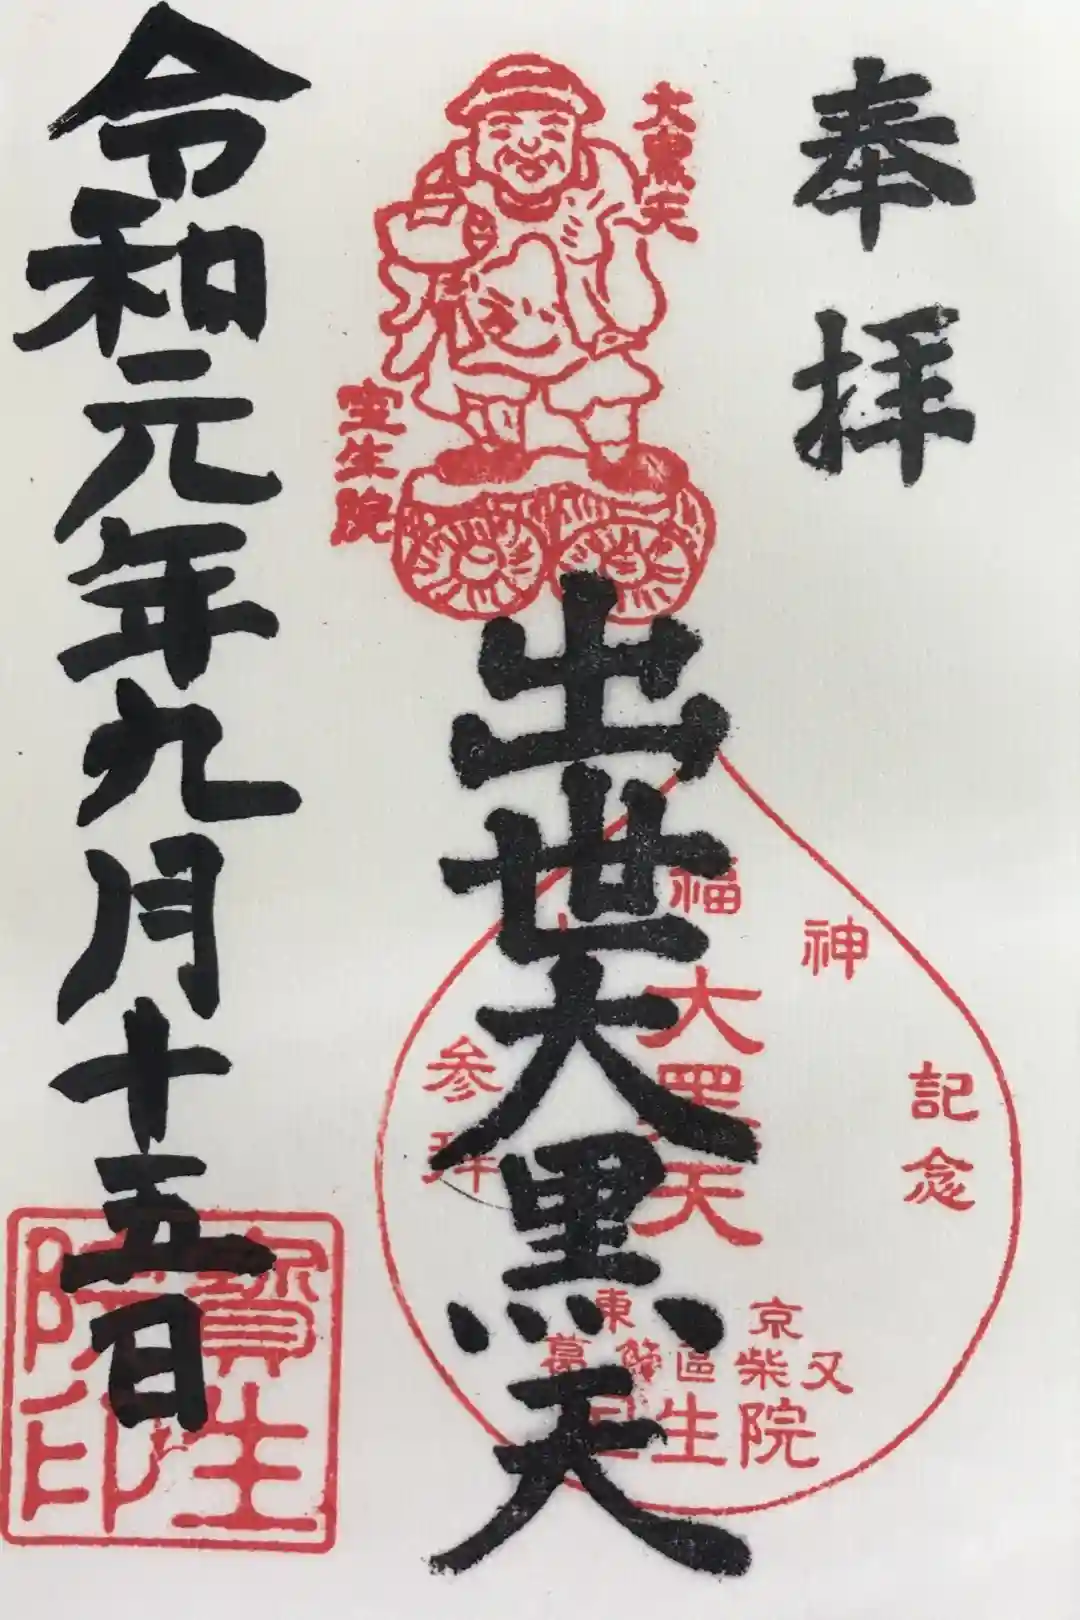 奉拝
大黒天
宝生院
出世大黒天
福神
記念
大黒天
参拝
東京
葛飾區柴又
生院
令和元年九月十五日
寶生
院印